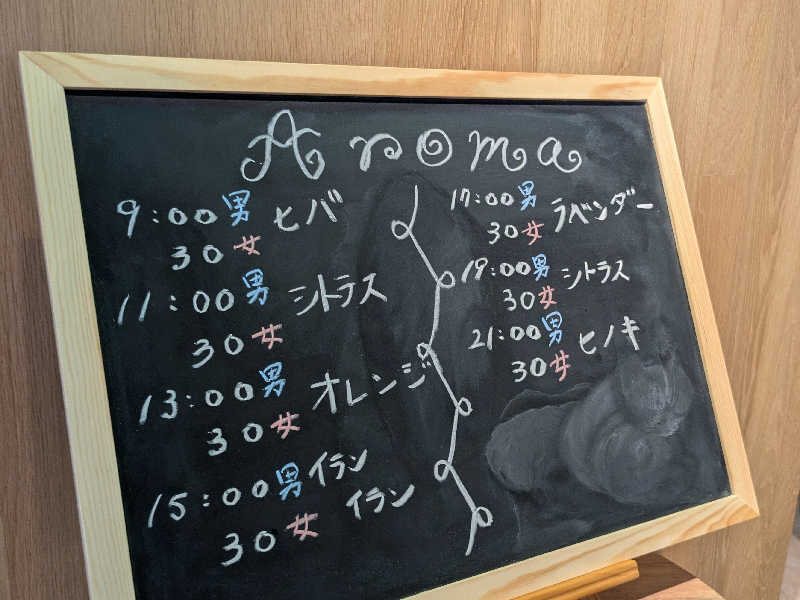 Aroma
9:00男 ヒバ
30女
11:00男 シトラス
30女
13:00男 オレンジ
30女
15:00男 イラン
30女 イラン
17:00男 ラベンダー
30女
19:00男 シトラス
30女
21:00男 ヒノキ
30女